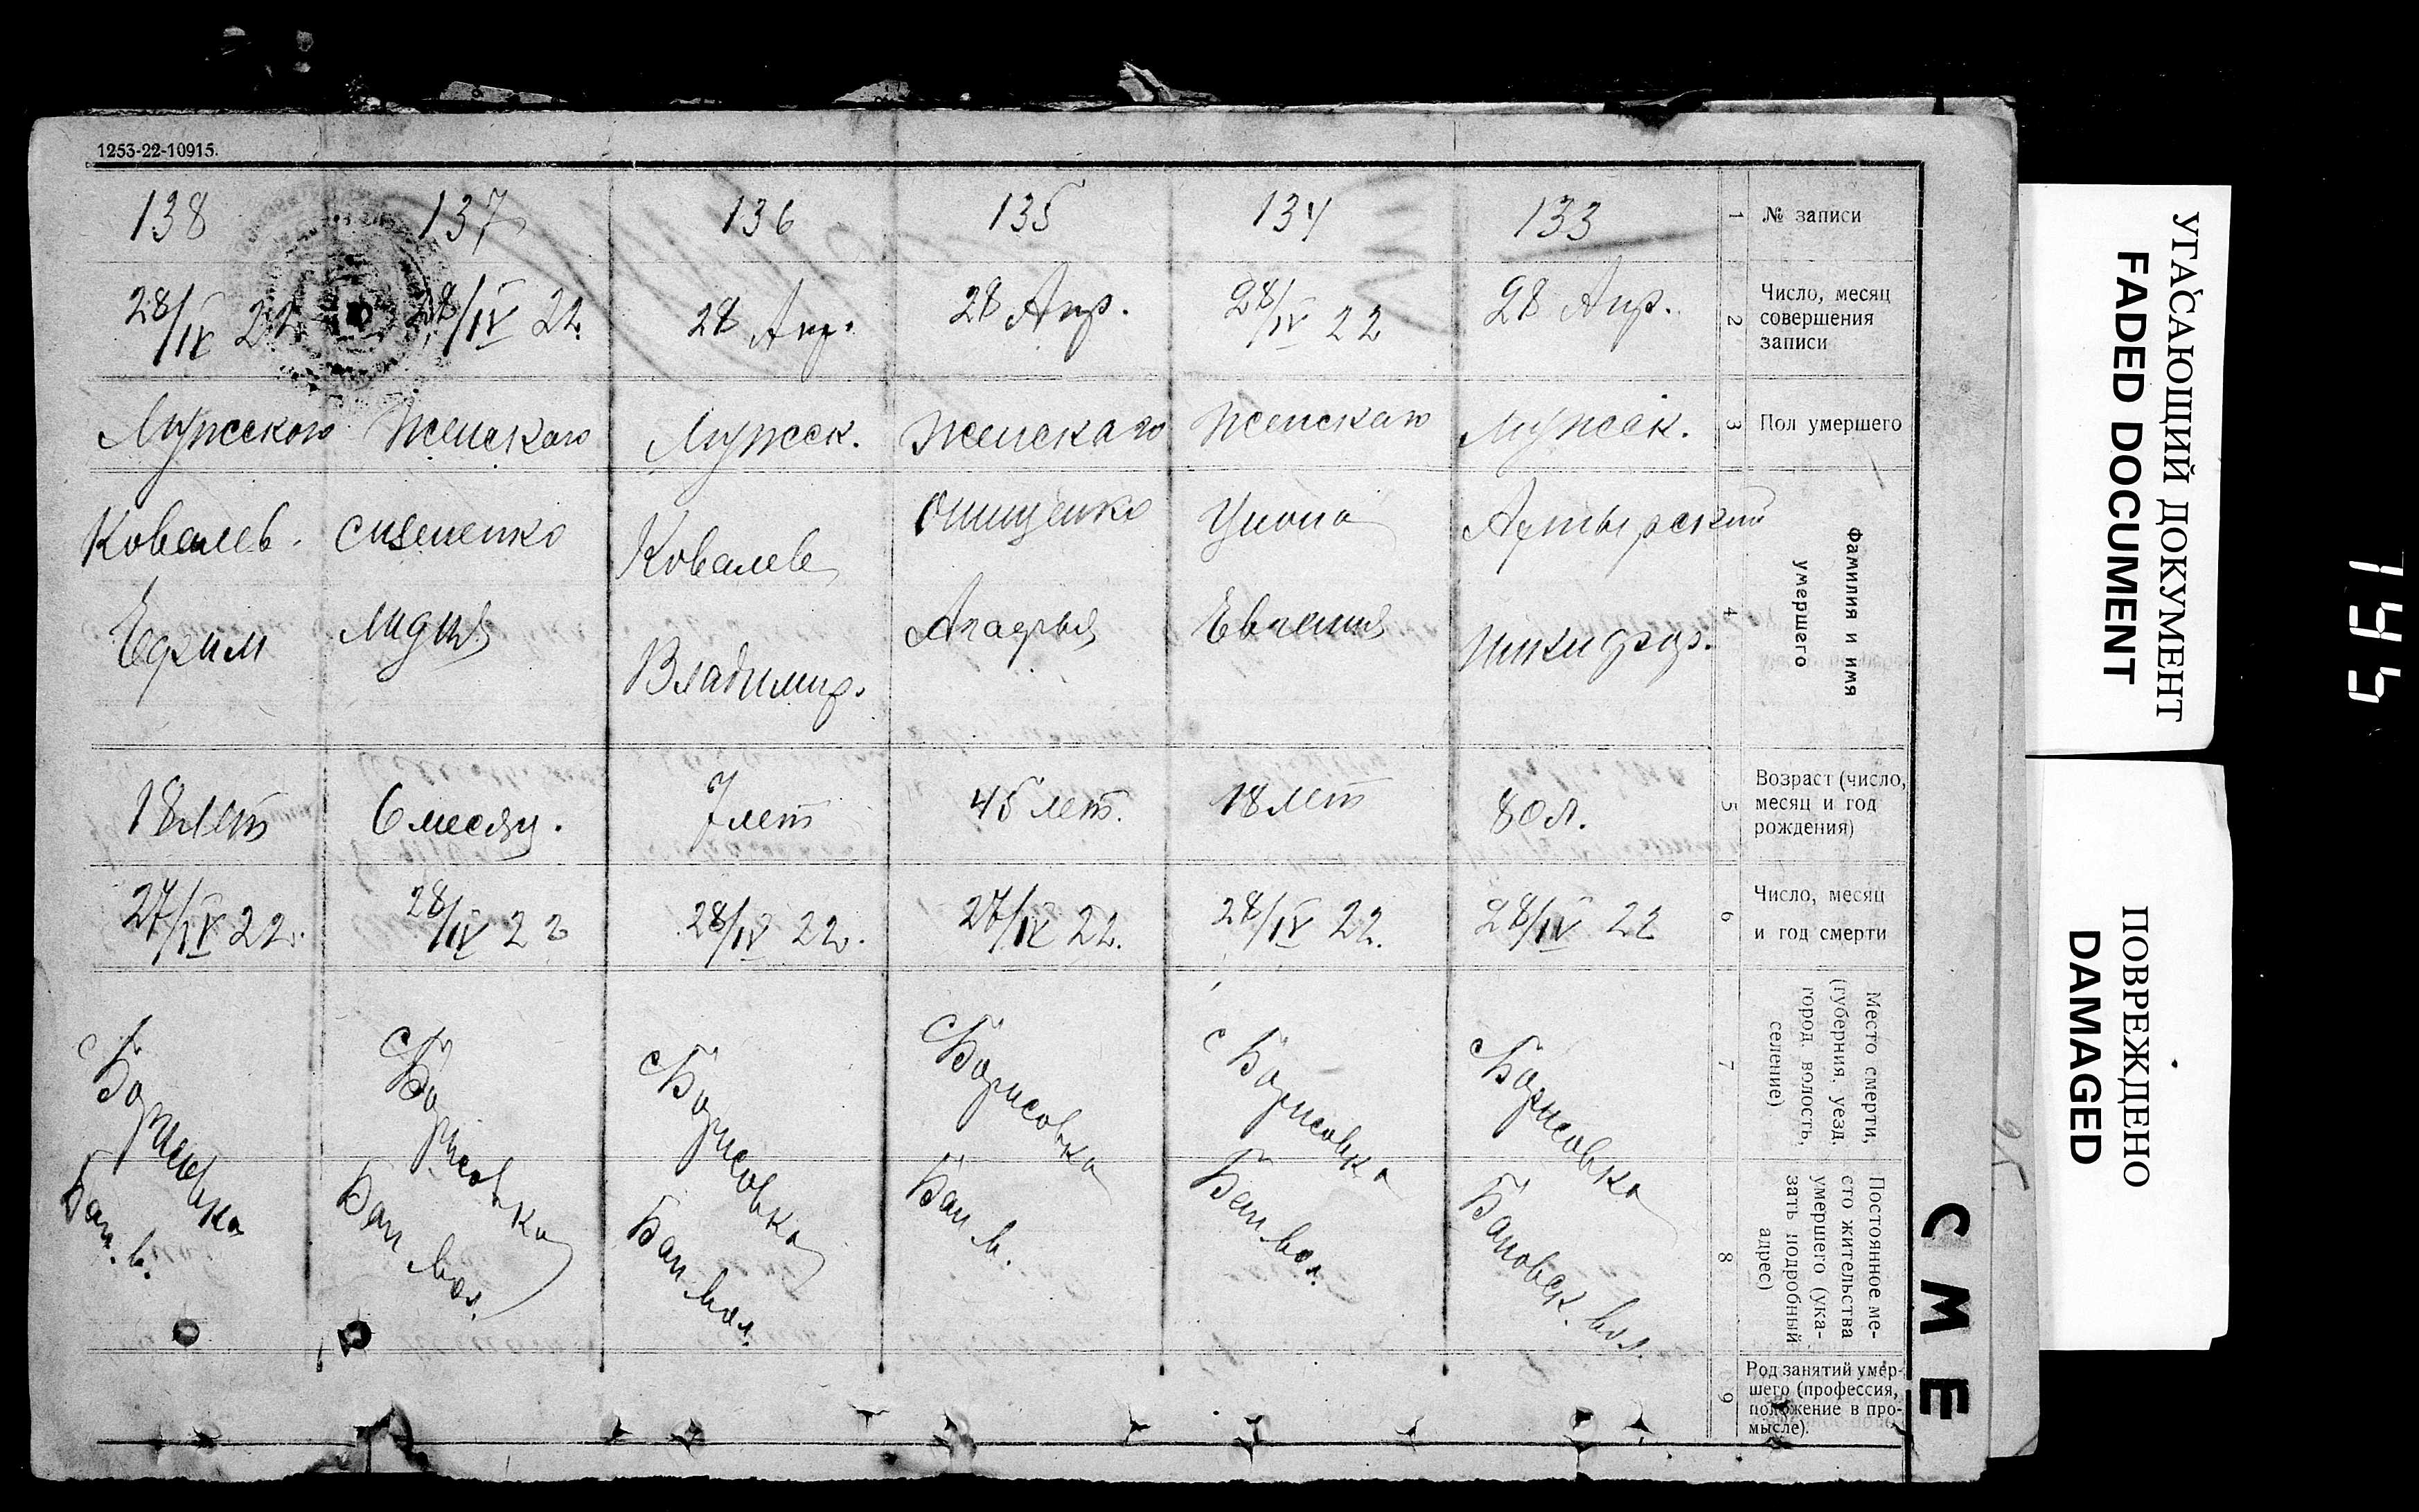 1253-22-10915.
138 137 136 135 134 133 1 № записи
28/IV 22 28/IV 22. 28 Апр. 28 Апр. 28/IV 22 28 Апр. 2 Число, месяц
совершения
записи
Мужского Женскаго Мужск. Женскаго Женскаго Мужск. 3 Пол умершего
Ковалев. Ковалев Онищенко Ахтырский 4 Фамилия и имя
умершего
Ефим Лидия Владимир. Агафья Евгения Никифор.
18 лет 6 месяц. 7 лет 45 лет. 18 лет 80 л. 5 Возраст (число,
месяц и год
рождения)
27/IV 22. 28/IV 22 28/IV 22. 27/IV 22. 28/IV 22. 28/IV 22 6 Число, месяц
и год смерти
с Борисовка с Борисовка с Борисовка с Борисовка с Борисовка с Борисовка 7 Место смерти,
(губерния, уезд,
город, волость,
селение)
Бан. в. Бан вол. Бан вол. Бан в. Бан вол. Бановск. вол. 8 Постоянное ме-
сто жительства
умершего (ука-
зать подробный
адрес)
9 Род занятий умер-
шего (профессия,
положение в про-
мысле).
СМЕ
25.
УГАСАЮЩИЙ ДОКУМЕНТ
FADED DOCUMENT
ПОВРЕЖДЕНО
DAMAGED